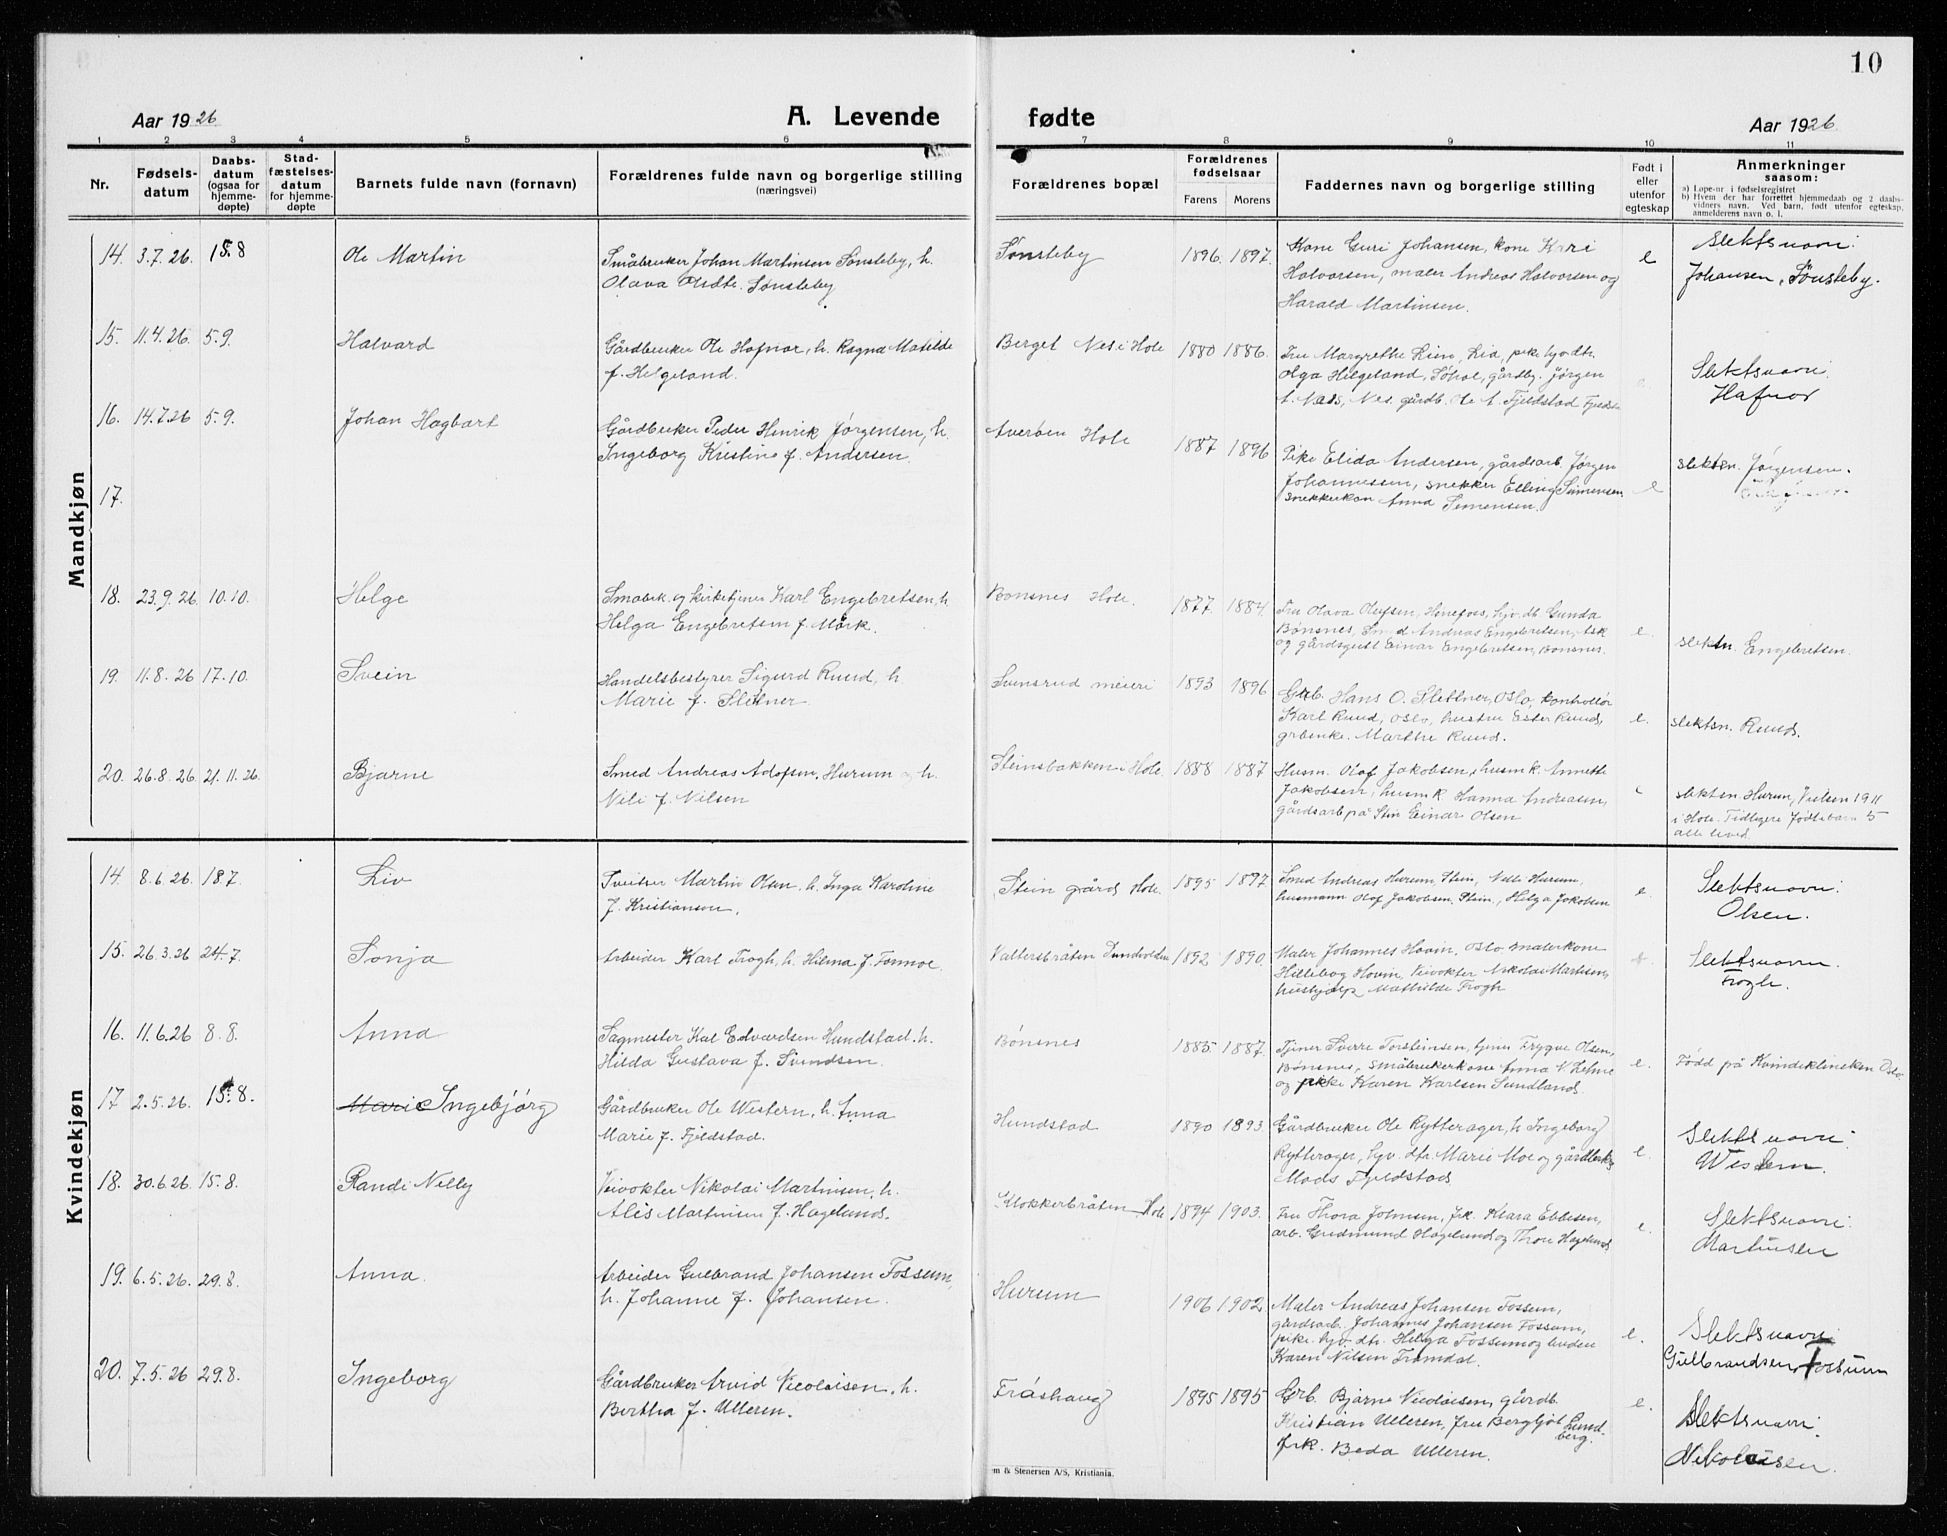 10
Aar 1926
A. Levende
fødte
Aar 1926
1 2 3 4 5 6 7 8 9 10 11
Nr.
Fødsels-
datum
Daabs-
datum
(ogsaa for
hjemme-
døpte)
Stad-
fæstelses-
datum
for hjemme-
døpte
Barnets fulde navn (fornavn)
Forældrenes fulde navn og borgerlige stilling
(næringsvei)
Forældrenes bopæl
Forældrenes
fødselsaar
Farens Morens
Faddernes navn og borgerlige stilling
Født i
eller
utenfor
egteskap
Anmerkninger
saasom:
a) Løpe-nr i fødselsregistret
b) Hvem der har forrettet hjemmedaab og 2 daabs-
vidners navn. Ved barn, født utenfor egteskap,
anmelderens navn o. l.
Mandkjøn
14. 3.7.26. 15.8 Ole Martin
Småbruker Johan Martinsen Sønsteby, h.
Olava Olsdtr. Sønsteby
Sønsteby 1896. 1897.
Kone Guri Johansen, kone Kari
Halvorsen, maler Andreas Halvorsen og
Harald Martinsen.
e
Slektsnavn:
Johansen, Sønsteby.
15. 11.4.26. 5.9. Halvard
Gårdbruker Ole Hafnor, h. Ragna Matilde
f. Helgeland.
Berget Nes i Hole 1880 1886.
Fru Margrethe Lien, Lia, pike hjv. dtr.
Olga Helgeland, Søhol, gårdbr. Jørgen
A. Næs, Nes, gårdb. Ole A. Fjeldstad
Slektsnavn.
Hafnor
16. 14.7.26 5.9. Johan Hagbart
Gårdbruker Peder Henrik Jørgensen, h.
Ingeborg Kristine f. Andersen.
Averøen Hole 1887 1896
Pike Elida Andersen, gårdsarb. Jørgen
Johannessen, snekker Elling Simensen,
snekkerkon Anna Simensen.
e
slektsn. Jørgensen.
17.
18. 23.9.26 10.10. Helge
Småbk. og kirketjener Karl Engebretsen, h.
Helga Engebretsen f. Mørk.
Bønsnes Hole. 1877. 1884.
Fru Olava Olufsen, Hønefoss, hjv. dt. Gunda
Bønsnes, Smed Andreas Engebretsen, Ask
og gårdsgutt Einar Engebretsen, Bønsnes.
e.
slektn. Engebretsen.
19. 11.8.26 17.10. Svein
Handelsbestyrer Sigurd Ruud, h.
Marie f. Slettner.
Svensrud meieri 1893 1896
Grb. Hans O. Slettner, Oslo, kontrollør
Karl Ruud, Oslo, hustru Ester Ruud,
grbenke. Marthe Ruud.
e.
slektsn. Ruud.
20. 26.8.26 21.11.26. Bjarne
Smed Andreas Adofsen, Hurum og h.
Nili f. Nilsen
Steinsbakken i Hole. 1888 1887
Husm. Olaf Jakobsen, husm k. Annette
Jakobsen, husm k. Hanna Andreasen,
gårdsarb på Stin Einar Olsen
slektsn. Hurum, Vielsen 1911
i Hole. Tidligere fødte barn 5
alle lived
Kvindekjøn
14. 8.6.26. 18.7. Liv
Sveitser Martin Olsen, h. Inga Karoline
f. Kristiansen.
Stein gård Hole. 1895 1897
Smed Andreas Hurum, Stein, Nelli Hurum,
husmann Olaf Jakobsen, Stein, Helga Jakobsen
e.
Slektsnavn:
Olsen.
15. 26.3.26 24.7. Sonja
Arbeider Karl Trogh, h. Hilma f. Tommoe.
1892 1890.
Maler Johannes Hovin, Oslo, malerkone
Hilleborg Hovin, Veivokter Nikolai Martinsen,
hushjælp Mathilde Trogh
Slektsnavn.
Trogh.
16. 11.6.26 8.8. Anna
Sagmester Karl Edvardsen Hundstad. h.
Hilda Gustava f. Svendsen.
Bønsnes 1885. 1887.
Tjener Sverre Torsteinsen, tjener Trygve Olsen,
Bønsnes, småbrukerkone Anna V Helme
og pike Karen Karlsen Sundland.
e.
Född på Kvindeklineken Oslo.
17 2.5.26. 15.8. Marie Ingebjörg
Gårdbruker Ole Western, h. Anna
Marie f. Fjeldstad.
Hundstad 1890 1893.
Gårdbruker Ole Rytterager, h. Ingeborg
Rytterager, hjv. dtr. Marie Moe og gårdbruk.
Mads Fjeldstad
e.
Slektsnavn:
Western.
18. 30.6.26. 15.8. Randi Nelly
Veivokter Nikolai Martinsen, h.
Alis Martinsen f. Hagelund.
Klokkerbråten Hole 1894 1903.
Fru Thora Johnsen, frk. Klara Ebbesen,
arb. Gudmund Hagelund og Thore Hagelund
e.
Slektsnavn:
Martinsen
19. 6.5.26. 29.8. Anna.
Arbeider Gulbrand Johansen Fossum,
h. Johanne f. Johansen.
Hurum 1906 1902
Maler Andreas Johansen Fossum,
gårdsarb. Johannes Johansen Fossum,
pike hjv. dtr. Helga Fossum og enken
Karen Nilsen Tromdal.
e.
Slektsnavn
Gulbrandsen, Fossum
20. 7.5.26 29.8. Ingeborg
Gårdbruker Arvid Nicolaisen, h.
Bertha f. Ulleren.
Fråshaug 1895 1895
Grb. Bjarne Nicolaisen, gårdb.
Kristian Ulleren, fru Bergljot Lund-
berg.
frk. Beda Ulleren.
e.
Slektsnavn:
Nikolaisen.
em & Stenersen A/S, Kristiania.